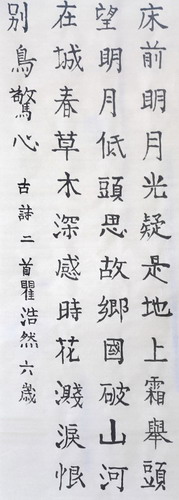 床前明月光疑是地上霜舉頭
望明月低頭思故鄉國破山河
在城春草木深感時花濺淚恨
別鳥驚心 古詩二首瞿浩然六歲